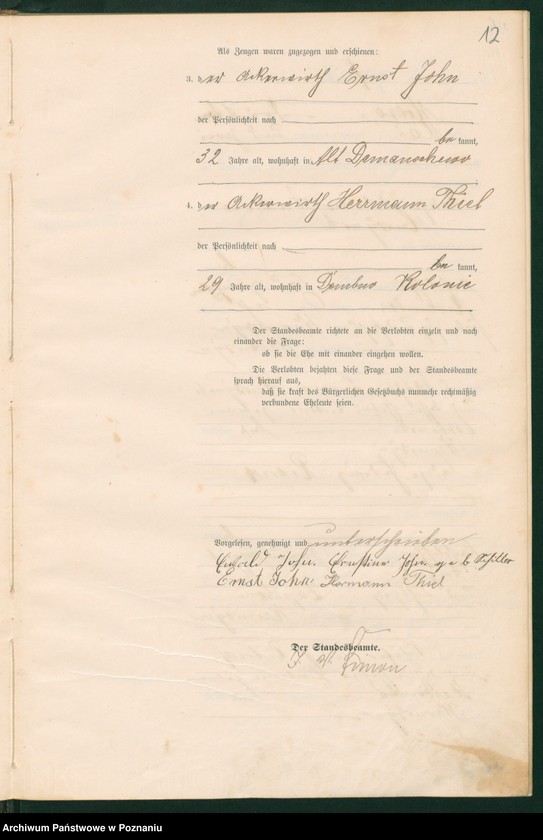 12
Als Zeugen waren zugezogen und erschienen:
3. der Ackerwirth Ernst John
der Persönlichkeit nach
be kannt,
32 Jahre alt, wohnhaft in Alt Demanschewo
4. der Ackerwirth Herrmann Thiel
der Persönlichkeit nach
be kannt,
29 Jahre alt, wohnhaft in Dembno Kolonie
Der Standesbeamte richtete an die Verlobten einzeln und nach
einander die Frage:
ob sie die Ehe mit einander eingehen wollen.
Die Verlobten bejahten diese Frage und der Standesbeamte
sprach hierauf aus,
daß sie kraft des Bürgerlichen Gesetzbuchs nunmehr rechtmäßig
verbundene Eheleute seien.
Vorgelesen, genehmigt und unterschrieben
Ewald John. Ernstine John geb Schiller
Ernst John Hermann Thiel
Der Standesbeamte.
Simon
Archiwum Państwowe w Poznaniu